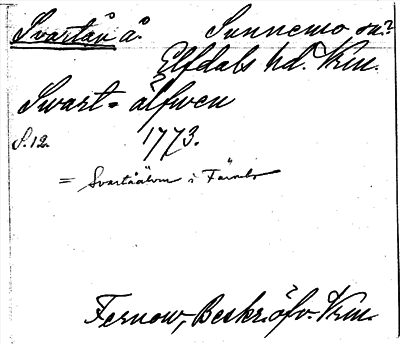 Svartån å. Sunnemo sn?
Elfdals hd. Vrm.
Swart-älfwen
S. 12. 1773.
= Svartåälven i Färnebo
Fernow, Beskr. öfv. Vrm.